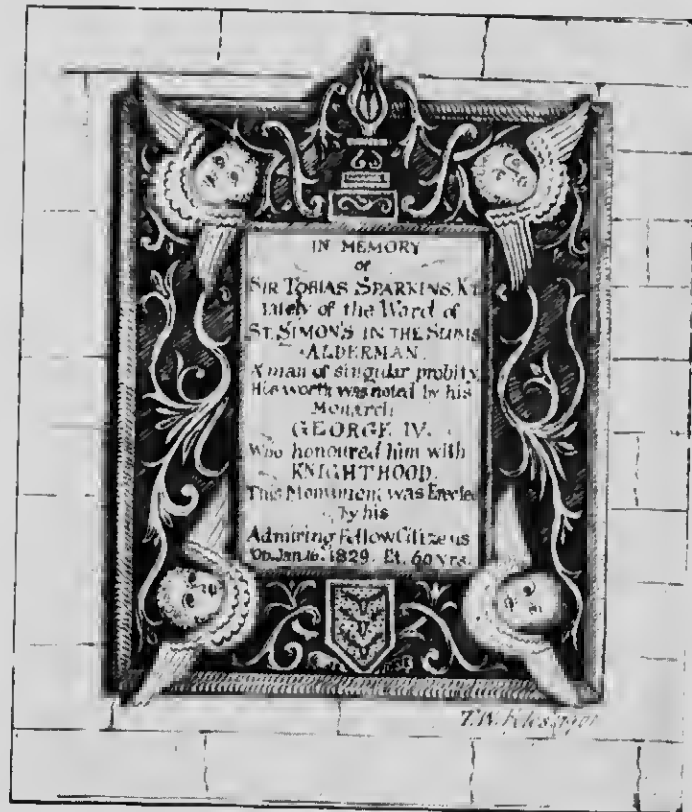 IN MEMORY
OF
SIR TOBIAS SPARKINS, KT
lately of the Ward of
ST. SIMON'S IN THE SLUMS
ALDERMAN.
A man of singular probity
His worth was noted by his
Monarch
GEORGE IV.
Who honoured him with
KNIGHTHOOD.
This Monument was Erected
by his
Admiring Fellow Citizens
Ob. Jan. 16. 1829. Et. 60 yrs.
T.W.